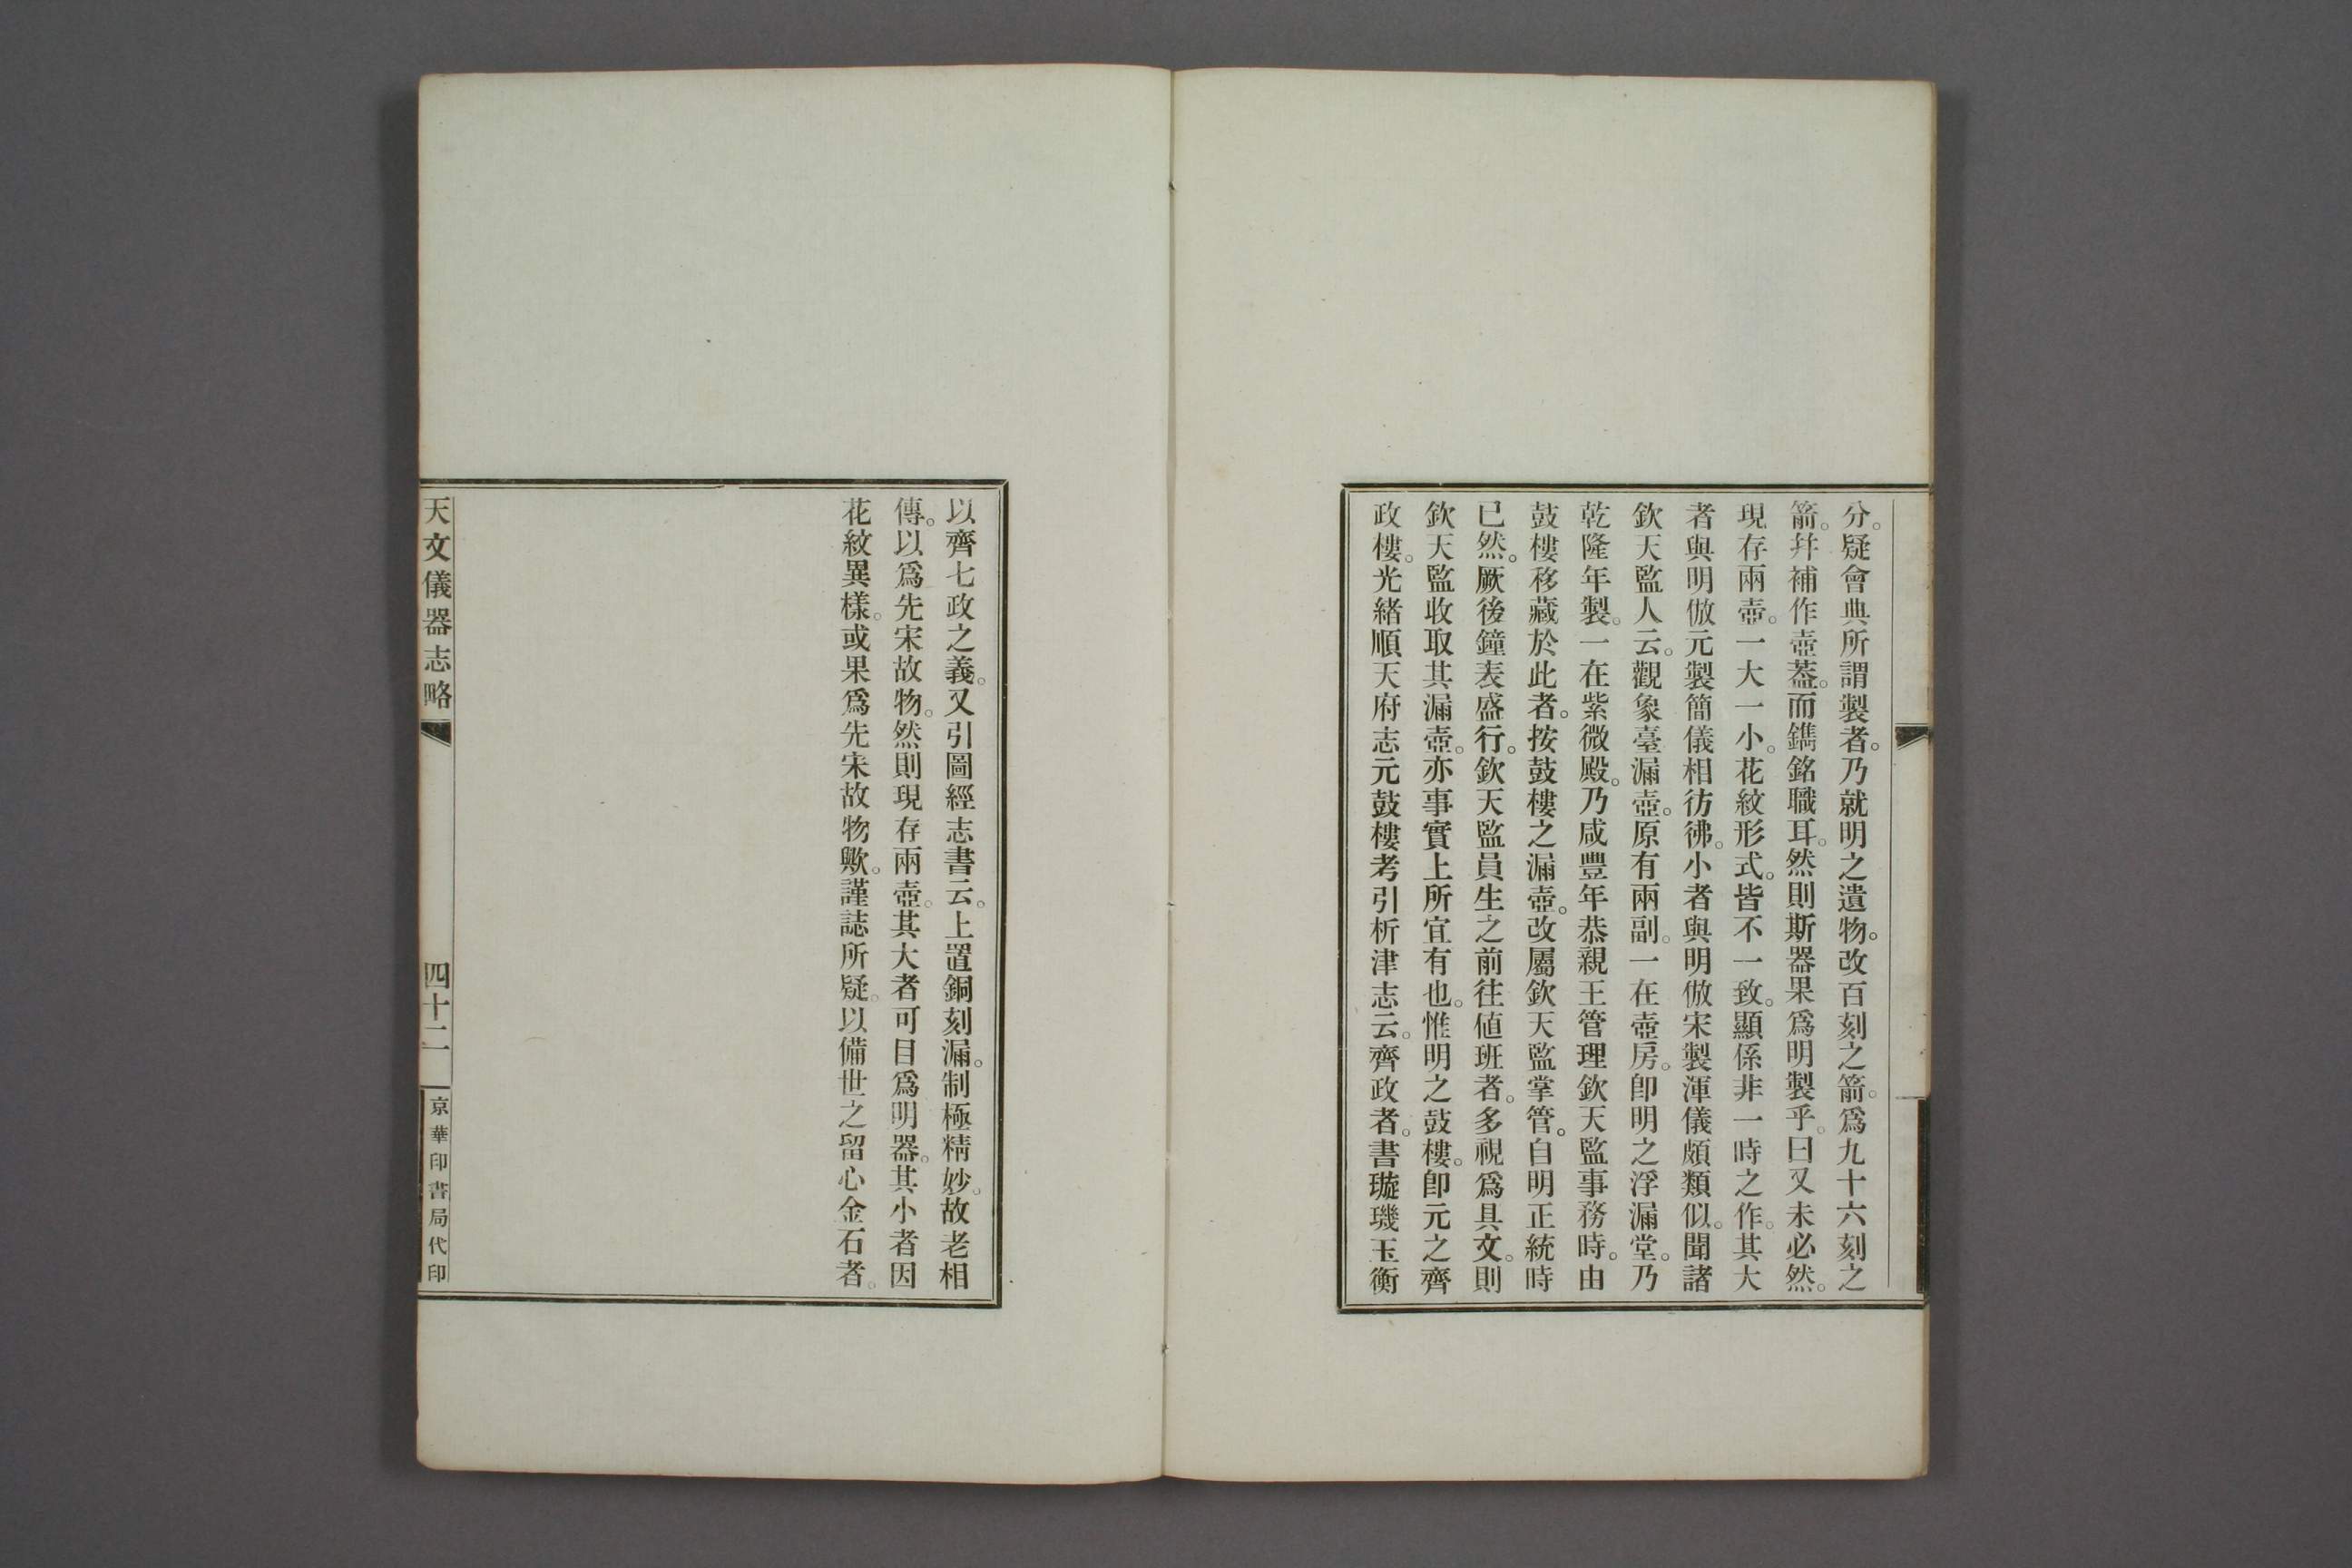 分。疑會典所謂製者。乃就明之遺物。改百刻之箭。爲九十六刻之
箭。幷補作壺葢。而鐫銘職耳。然則斯器果爲明製乎。曰又未必然。
現存兩壺。一大一小。花紋形式。皆不一致。顯係非一時之作。其大
者與明倣元製簡儀相彷彿。小者與明倣宋製渾儀頗類似。聞諸
欽天監人云。觀象臺漏壺。原有兩副。一在壺房。卽明之浮漏堂。乃
乾隆年製。一在紫微殿。乃咸豐年恭親王管理欽天監事務時。由
鼓樓移藏於此者。按鼓樓之漏壺。改屬欽天監掌管。自明正統時
已然。厥後鐘表盛行。欽天監員生之前往値班者。多視爲具文。則
欽天監收取其漏壺。亦事實上所宜有也。惟明之鼓樓。卽元之齊
政樓。光緒順天府志元鼓樓考引析津志云。齊政者。書璇璣玉衡
以齊七政之義。又引圖經志書云。上置銅刻漏。制極精妙。故老相
傳。以爲先宋故物。然則現存兩壺。其大者可目爲明器。其小者因
花紋異樣。或果爲先宋故物歟。謹誌所疑。以備世之留心金石者。
天文儀器志略
四十二
京華印書局代印